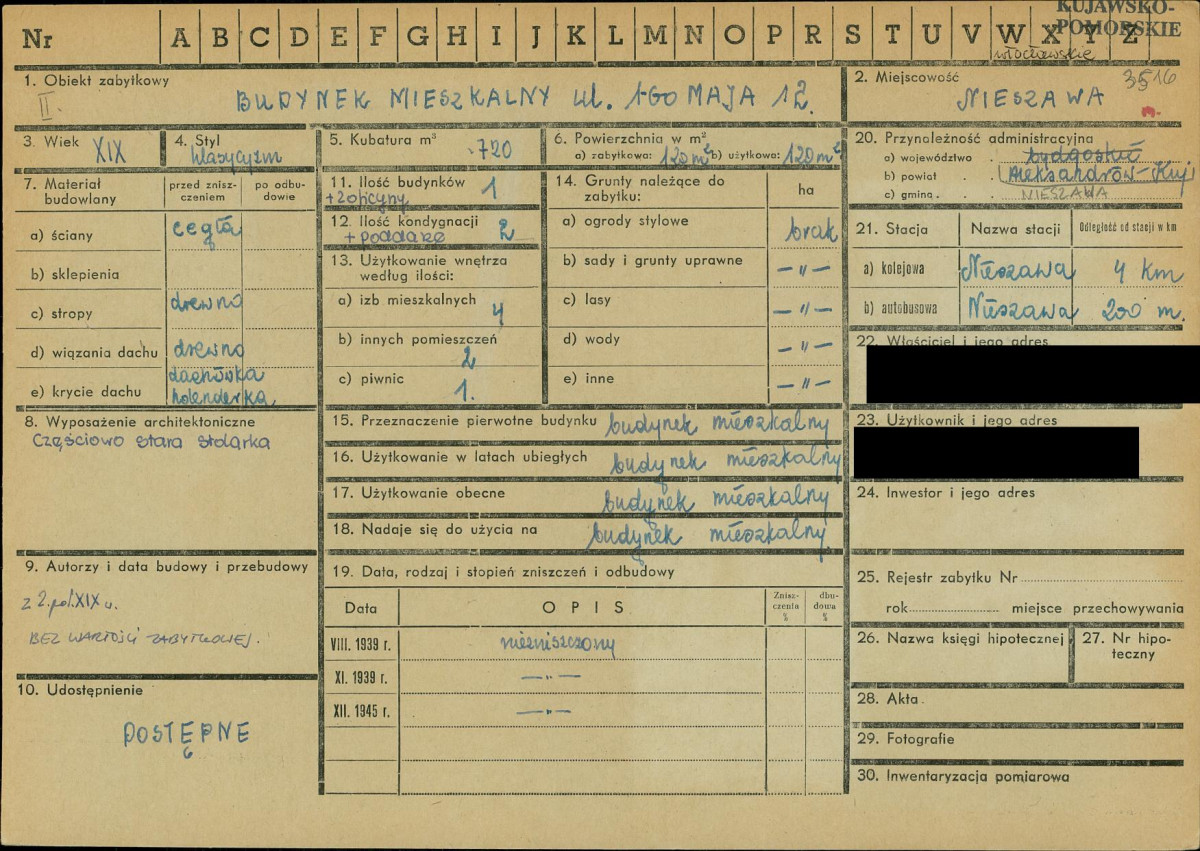 KUJAWSKO-
POMORSKIE
Nr A B C D E F G H I J K L M N O P R S T U V W X Y Z
włocławskie
1. Obiekt zabytkowy
II.
BUDYNEK MIESZKALNY ul. 1-GO MAJA 12.
2. Miejscowość
NIESZAWA
3. Wiek XIX
4. Styl
klasycyzm
5. Kubatura m³
720
6. Powierzchnia w m²
a) zabytkowa: 120 m² b) użytkowa: 120 m²
7. Materiał budowlany
przed znisz-
czeniem
po odbu-
dowie
a) ściany cegła
b) sklepienia
c) stropy drewno
d) wiązania dachu drewno
e) krycie dachu dachówka
holenderka
8. Wyposażenie architektoniczne
Częściowo stara stolarka
9. Autorzy i data budowy i przebudowy
z 2. poł. XIX w.
BEZ WARTOŚCI ZABYTKOWEJ.
10. Udostępnienie
DOSTĘPNE
11. Ilość budynków 1
+ 2 oficyny
12. Ilość kondygnacji 2
+ poddasze
13. Użytkowanie wnętrza
według ilości:
a) izb mieszkalnych 4
b) innych pomieszczeń
2
c) piwnic 1.
14. Grunty należące do
zabytku:
ha
a) ogrody stylowe brak
b) sady i grunty uprawne — " —
c) lasy — " —
d) wody — " —
e) inne — " —
15. Przeznaczenie pierwotne budynku budynek mieszkalny
16. Użytkowanie w latach ubiegłych budynek mieszkalny
17. Użytkowanie obecne budynek mieszkalny
18. Nadaje się do użycia na budynek mieszkalny
19. Data, rodzaj i stopień zniszczeń i odbudowy
Data OPIS
Znisz-
czenia
%
dbu-
dowa
%
VIII. 1939 r. niezniszczony
XI. 1939 r. — " —
XII. 1945 r. — " —
20. Przynoleżność administracyjna
a) województwo bydgoskie
b) powiat Aleksandrów-Kuj
c) gmina NIESZAWA
21. Stacja Nazwa stacji Odległość od stacji w km
a) kolejowa Nieszawa 4 km
b) autobusowa Nieszawa 200 m.
22. Właściciel i jego adres
23. Użytkownik i jego adres
24. Inwestor i jego adres
25. Rejestr zabytku Nr
rok miejsce przechowywania
26. Nazwa księgi hipotecznej
27. Nr hipo-
teczny
28. Akta
29. Fotografie
30. Inwentaryzacja pomiarowa